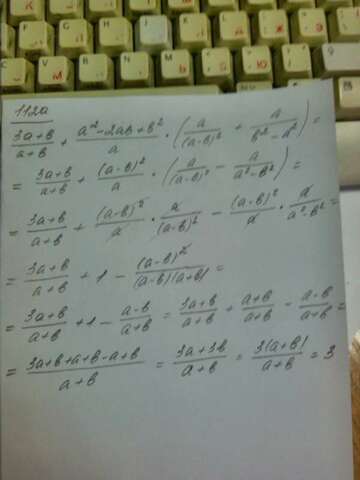 112a
(3a+b)/(a+b) + (a²-2ab+b²)/a · (a/(a-b)² + a/(b²-a²)) =
= (3a+b)/(a+b) + (a-b)²/a · (a/(a-b)² - a/(a²-b²)) =
= (3a+b)/(a+b) + (a-b)²/a · a/(a-b)² - (a-b)²/a · a/(a²-b²) =
= (3a+b)/(a+b) + 1 - (a-b)²/((a-b)(a+b)) =
= (3a+b)/(a+b) + 1 - (a-b)/(a+b) = (3a+b)/(a+b) + (a+b)/(a+b) - (a-b)/(a+b) =
= (3a+b+a+b-a+b)/(a+b) = (3a+3b)/(a+b) = 3(a+b)/(a+b) = 3